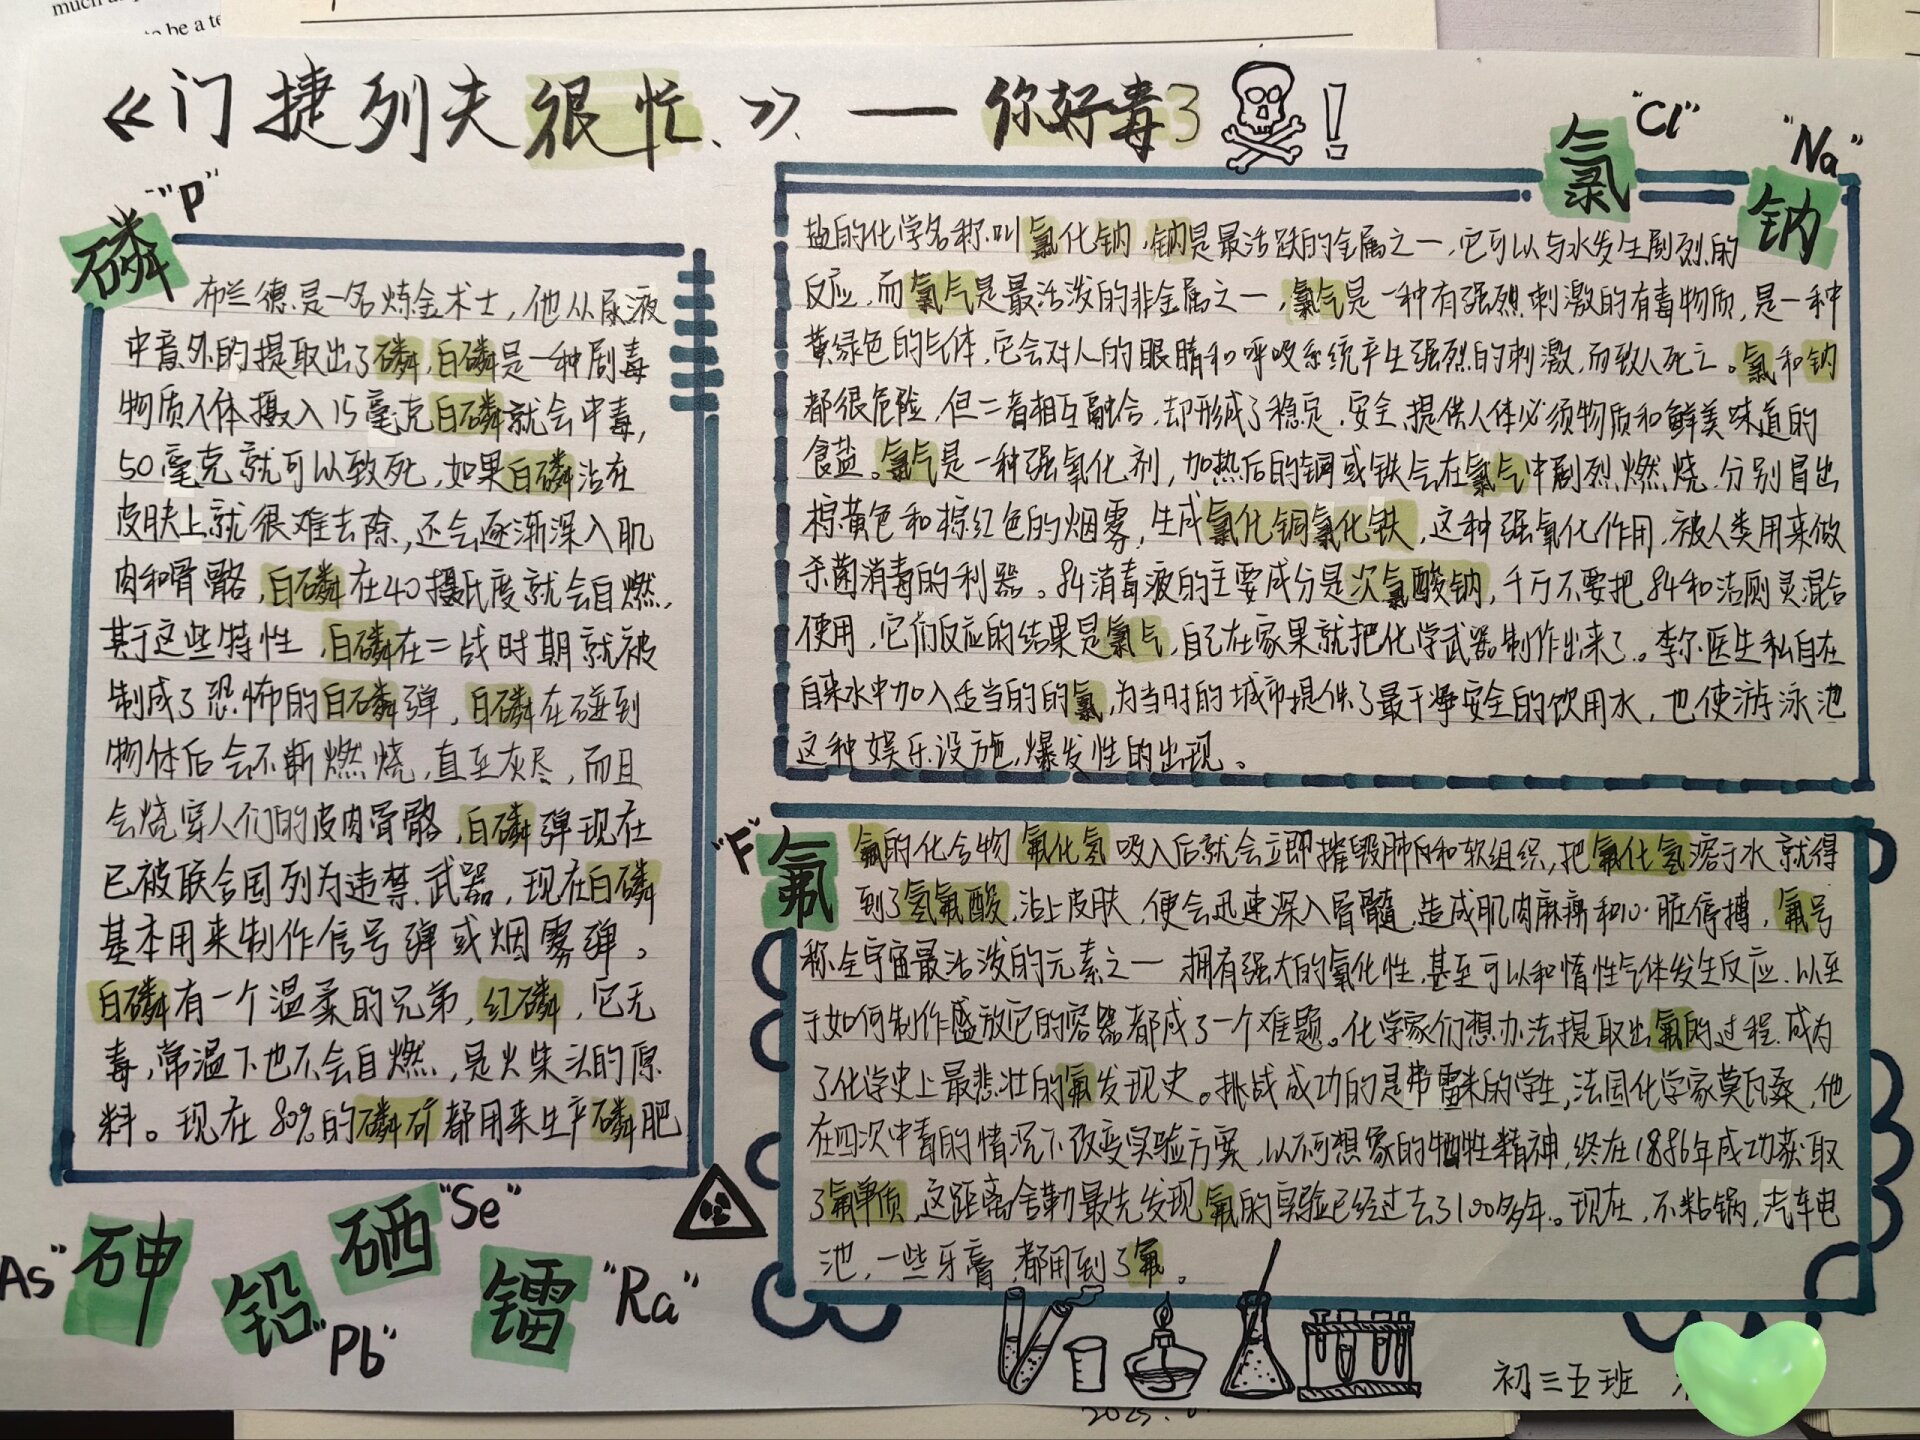 much
to be a te
《门捷列夫很忙、》——你好毒3!
"P"
磷
布兰德是一名炼金术士，他从尿液
中意外的提取出了磷，白磷是一种剧毒
物质人体摄入15毫克白磷就会中毒，
50毫克就可以致死，如果白磷沾在
皮肤上就很难去除，还会逐渐深入肌
肉和骨骼，白磷在40摄氏度就会自燃，
基于这些特性，白磷在二战时期就被
制成了恐怖的白磷弹，白磷在碰到
物体后会不断燃烧，直至灰尽，而且
会烧穿人们的皮肉骨骼，白磷弹现在
已被联合国列为违禁武器，现在白磷
基本用来制作信号弹或烟雾弹。
白磷有一个温柔的兄弟，红磷，它无
毒，常温下也不会自燃，是火柴头的原
料。现在80%的磷矿都用来生产磷肥
As"
砷
铅
"Pb"
硒
"Se"
镭
"Ra"
氯
"Cl"
"Na"
钠
盐的化学名称叫氯化钠，钠是最活跃的金属之一，它可以与水发生剧烈的
反应，而氯气是最活泼的非金属之一，氯气是一种有强烈刺激的有毒物质，是一种
黄绿色的气体，它会对人的眼睛和呼吸系统产生强烈的刺激，而致人死亡。氯和钠
都很危险，但二者相互融合，却形成了稳定，安全，提供人体必须物质和鲜美味道的
食盐。氯气是一种强氧化剂，加热后的铜或铁会在氯气中剧烈燃烧，分别冒出
棕黄色和棕红色的烟雾，生成氯化铜氯化铁，这种强氧化作用，被人类用来做
杀菌消毒的利器。84消毒液的主要成分是次氯酸钠，千万不要把84和洁厕灵混合
使用，它们反应的结果是氯气，自己在家果就把化学武器制作出来了。李尔医生私自在
自来水中加入适当的的氯，为当时的城市提供了最干净安全的饮用水，也使游泳池
这种娱乐设施，爆发性的出现。
"F"
氟
氟的化合物氟化氢吸入后就会立即摧毁肺部和软组织，把氟化氢溶于水就得
到了氢氟酸，沾上皮肤，便会迅速深入骨髓，造成肌肉麻痹和心脏停搏，氟号
称全宇宙最活泼的元素之一 拥有强大的氧化性，甚至可以和惰性气体发生反应，以至
于如何制作盛放它的容器都成了一个难题。化学家们想办法提取出氟的过程，成为
了化学史上最悲壮的氟发现史。挑战成功的是弗雷米的学生，法国化学家莫瓦桑，他
在四次中毒的情况下改变实验方案，以不可想象的牺牲精神，终在1886年成功获取
了氟单质，这距离舍勒最先发现氟的实验已经过去了100多年。现在，不粘锅，汽车电
池，一些牙膏，都用到了氟。
初三五班